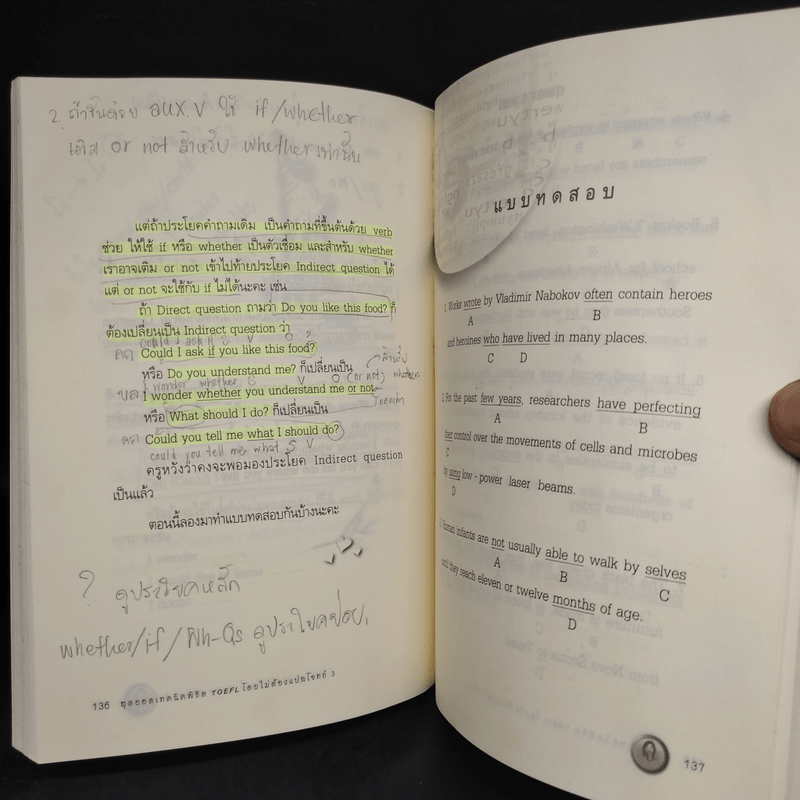 2. ถ้าขึ้นด้วย aux.v ใช้ if/whether
เติม or not สำหรับ whether เท่านั้น
แต่ถ้าประโยคคำถามเดิม เป็นคำถามที่ขึ้นต้นด้วย verb
ช่วย ให้ใช้ if หรือ whether เป็นตัวเชื่อม และสำหรับ whether
เราอาจเติม or not เข้าไปท้ายประโยค Indirect question ได้
แต่ or not จะใช้กับ if ไม่ได้นะคะ เช่น
ถ้า Direct question ถามว่า Do you like this food? ก็
ต้องเปลี่ยนเป็น Indirect question ว่า
could I ask if S V O ?
Could I ask if you like this food?
หรือ Do you understand me? ก็เปลี่ยนเป็น
สำหรับ
I wonder whether S V O (or not) whether
I wonder whether you understand me or not
หรือ What should I do? ก็เปลี่ยนเป็น
Could you tell me what I should do?
could you tell me what S V
ครูหวังว่าคงจะพอมองประโยค Indirect question
เป็นแล้ว
ตอนนี้ลองมาทำแบบทดสอบกันบ้างนะคะ
? ดูประโยคหลัก
whether/if/Wh-Qs ดูประโยคย่อย
136 สุดยอดเทคนิคพิชิต TOEFL โดยไม่ต้องแปลโจทย์ 3
แบบทดสอบ
1. Works wrote by Vladimir Nabokov often contain heroes
A B
and heroines who have lived in many places.
C D
2. For the past few years, researchers have perfecting
A B
their control over the movements of cells and microbes
C
by using low - power laser beams.
D
3. Human infants are not usually able to walk by selves
A B C
until they reach eleven or twelve months of age.
D
137